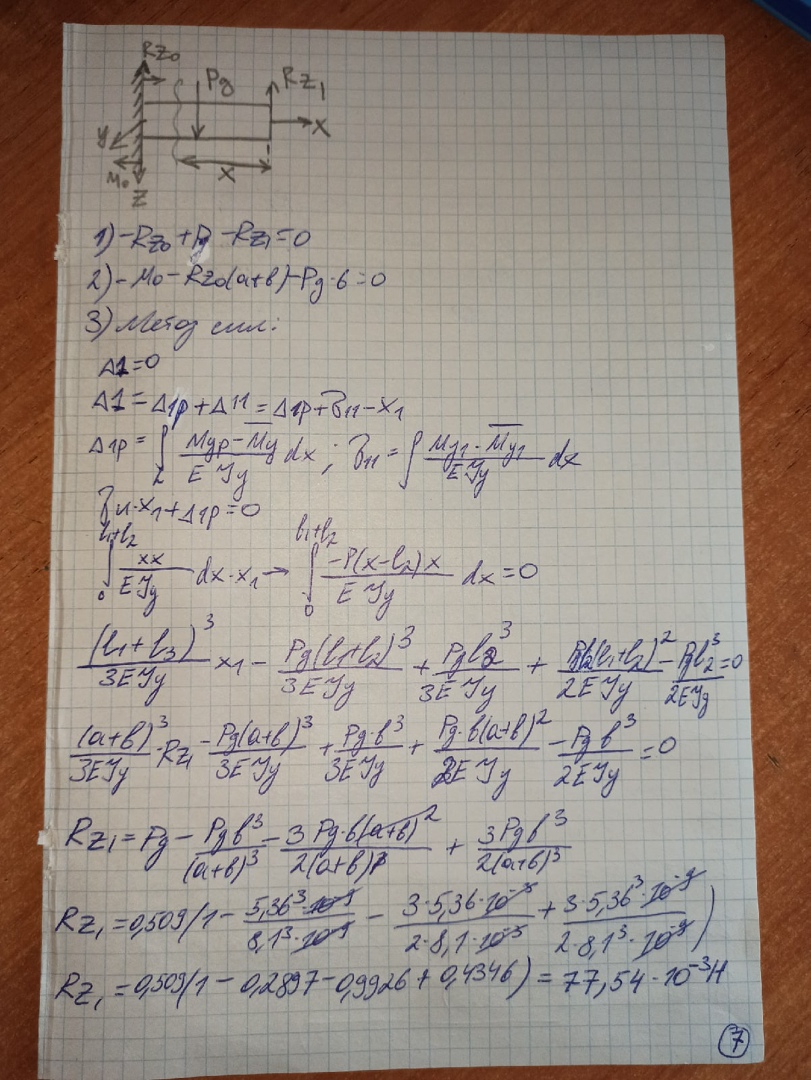 Rz₀
Pg Rz₁
y x
M₀ x
z
1) -Rz₀+Pg-Rz₁=0
2) -M₀-Rz₀(a+b)-Pg·b=0
3) Метод сил:
Δ1=0
Δ1=Δ1p+Δ11=Δ1p+δ11-x₁
Δ1p=∫L (Myp-M̅y)/(EJy) dx; δ11=∫(My1·M̅y1)/(EJy) dx
δ11·x₁+Δ1p=0
∫₀^(l₁+l₂) xx/(EJy) dx·x₁→∫₀^(l₁+l₂) -P(x-l₂)x/(EJy) dx=0
(l₁+l₃)³/(3EJy) x₁ - Pg(l₁+l₂)³/(3EJy) + Pgl₂³/(3EJy) + Pgl₂(l₁+l₂)²/(2EJy) - Pgl₂³/(2EJy)=0
(a+b)³/(3EJy)·Rz₁ - Pg(a+b)³/(3EJy) + Pg·b³/(3EJy) + Pg·b(a+b)²/(2EJy) - Pgb³/(2EJy)=0
Rz₁=Pg - Pgb³/(a+b)³ - 3Pg·b(a+b)²/2(a+b)³ + 3Pgb³/2(a+b)³
Rz₁=0,509(1 - 5,36³·10⁻⁹/8,1³·10⁻⁹ - 3·5,36·10⁻³/2·8,1·10⁻³ + 3·5,36³·10⁻⁹/2·8,1³·10⁻⁹)
Rz₁=0,509(1-0,2897-0,9926+0,4346)=77,54·10⁻³Н
7